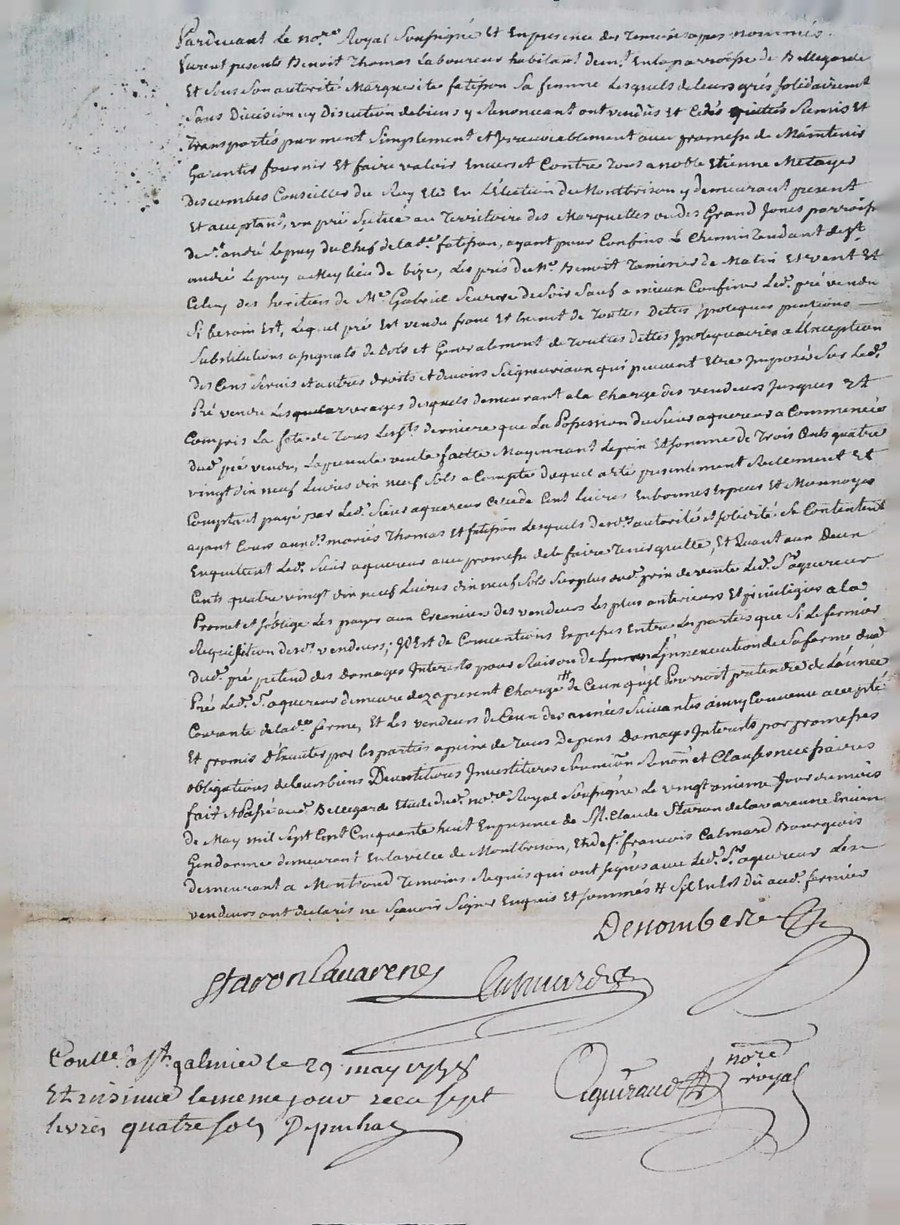 Pardevant Le no.re Royal Soussigné Et En presence des Temoins apres nommés
furent presents Benoit Thomas Laboureur habitant dem.t En la parroisse de Bellegarde
Et sous Son autorité Marguerite fatisson Sa femme Lesquels de leurs grés solidairement
Sans Division ny Discution de biens y Renonceant ont vendus Et Cedés quittes Remis Et
Transportés purement Simplement et Irrevocablement avec promesse de Maintenir
Garentir fournir Et faire valoir Envers et Contre Tous a noble Etienne Metayer
Descombes Conseiller du Roy Elû En L'Election de Montbrison y demeurant present
Et acceptant, un pré Scitué au Territoire des Marquelles ou des Grand Jones parroisse
de S.t andré Lepuy du Chef de lad.e fatisson, ayant pour Confins Le Chemin Tendant de S.t
andré Lepuy a Meylieu de bize, Les prés de M.e Benoit Tamisier de Matin Et vent Et
Celuy des heritiers de M.e Gabriel de Soir Sauf a mieux Confiner Led. pré vendu
Si besoin Est, Lequel pré Est vendu franc Et de Toutes Dettes ypoteques pensions
Substitutions apignats de Dots et Generalement de Toutes dettes ypotequaires a L'Exception
des Cens Servis et autres droits et devoirs Seigneuriaux qui peuvent Etre Imposés Sur Led.
Pré vendu Lesquels arrerages desquels demeurant a la Charge des vendeurs Jusques Et
Compris La fete de Tous Les S.ts derniere que La Possession du Sieur aquereur a Commencée
dud. pré vendu, La presente vente faitte Moyennant Le prix Et somme de Trois Cents quatre
vingt dix neuf Livres dix neuf Sols a Compte duquel a été presentement Reellement Et
Compté et payé par Led. Sieur aquereur Cent Livres En bonnes Especes et Monnoyes
ayant Cours aux d. mariés Thomas Et fatisson Lesquels de d. autorité et solidité Se Contentent
En quittent Led. Sieur aquereur avec promesse de le faire Tenir quitte, Et Quant aux Deux
Cents quatre vingt dix neuf Livres dix neuf Sols Surplus dud. prix de vente Led. S.r aquereur
Promet et s'oblige Les payer aux Creanciers des vendeurs Les plus anterieurs Et privilegiés a la
Requisition desd. vendeurs; Il Est de Conventions Expresses Entre Les parties que Si le fermier
dud. pré pretend des Domages Interets pour Raison de L'Innexecution de Sa ferme dud.
Pré Led. S.r aquereur demeure dez a present Chargé de Ceux qu'il Pourroit pretendre de L'année
Courante de lad. ferme, Et Les vendeurs de Ceux des années Suivantes ainsy Convenu accepté
Et promis Executer par les parties a peine de Tous Depens Domages Interets par promesses
obligations de leurs biens Devestitures Investitures Renon et Clauses necessaires
fait et Passé aud. Bellegarde Etude du no.re Royal Soussigné Le vingt Jour du mois
de May mil Sept Cent Cinquante huit En presence de S.r Claude Staron de la varenne Encien
Gendarme demeurant En la ville de Montbrison, Et de S.r francois Calmard Bourgeois
demeurant a Montrond Temoins Requis qui ont signés avec Led. S.r aquereur Les
vendeurs ont declarés ne Sçavoir Signer Enquis Et Sommés
Descombes
Staron Lavarenne Calmard
Conllé a S.t galmier le 29 may 1758
Et insinué le meme jour recu sept
livres quatre sols
nore
royal